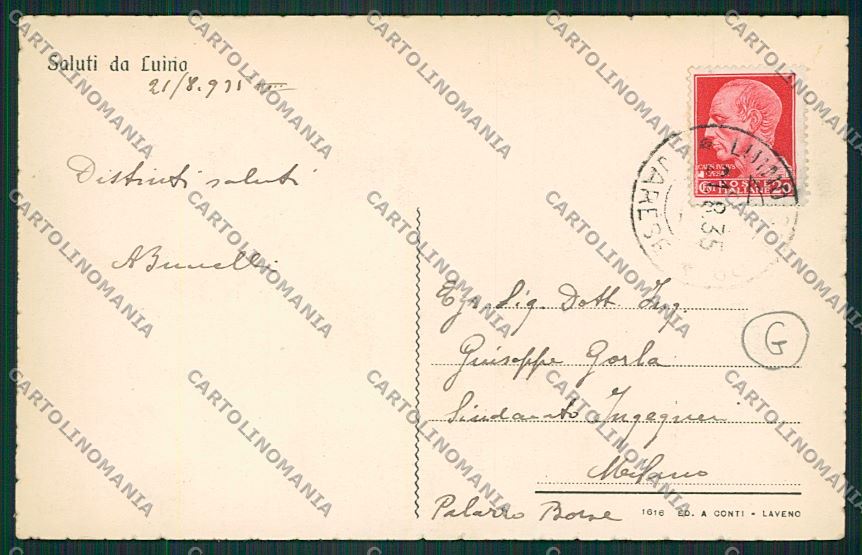 Saluti da Luino
21/8.935 XIII
Distinti saluti
ABrunelli
CAIVS IVLIVS
CAESAR
POSTE
ITALIANE
CENT 20
LUINO
21.8.35
VARESE
Egr. Sig. Dott. Ing.
Giuseppe Gorla
G
Sindacato Ingegneri
Milano
Palazzo Borse
1616 ED. A CONTI - LAVENO
CARTOLINOMANIA